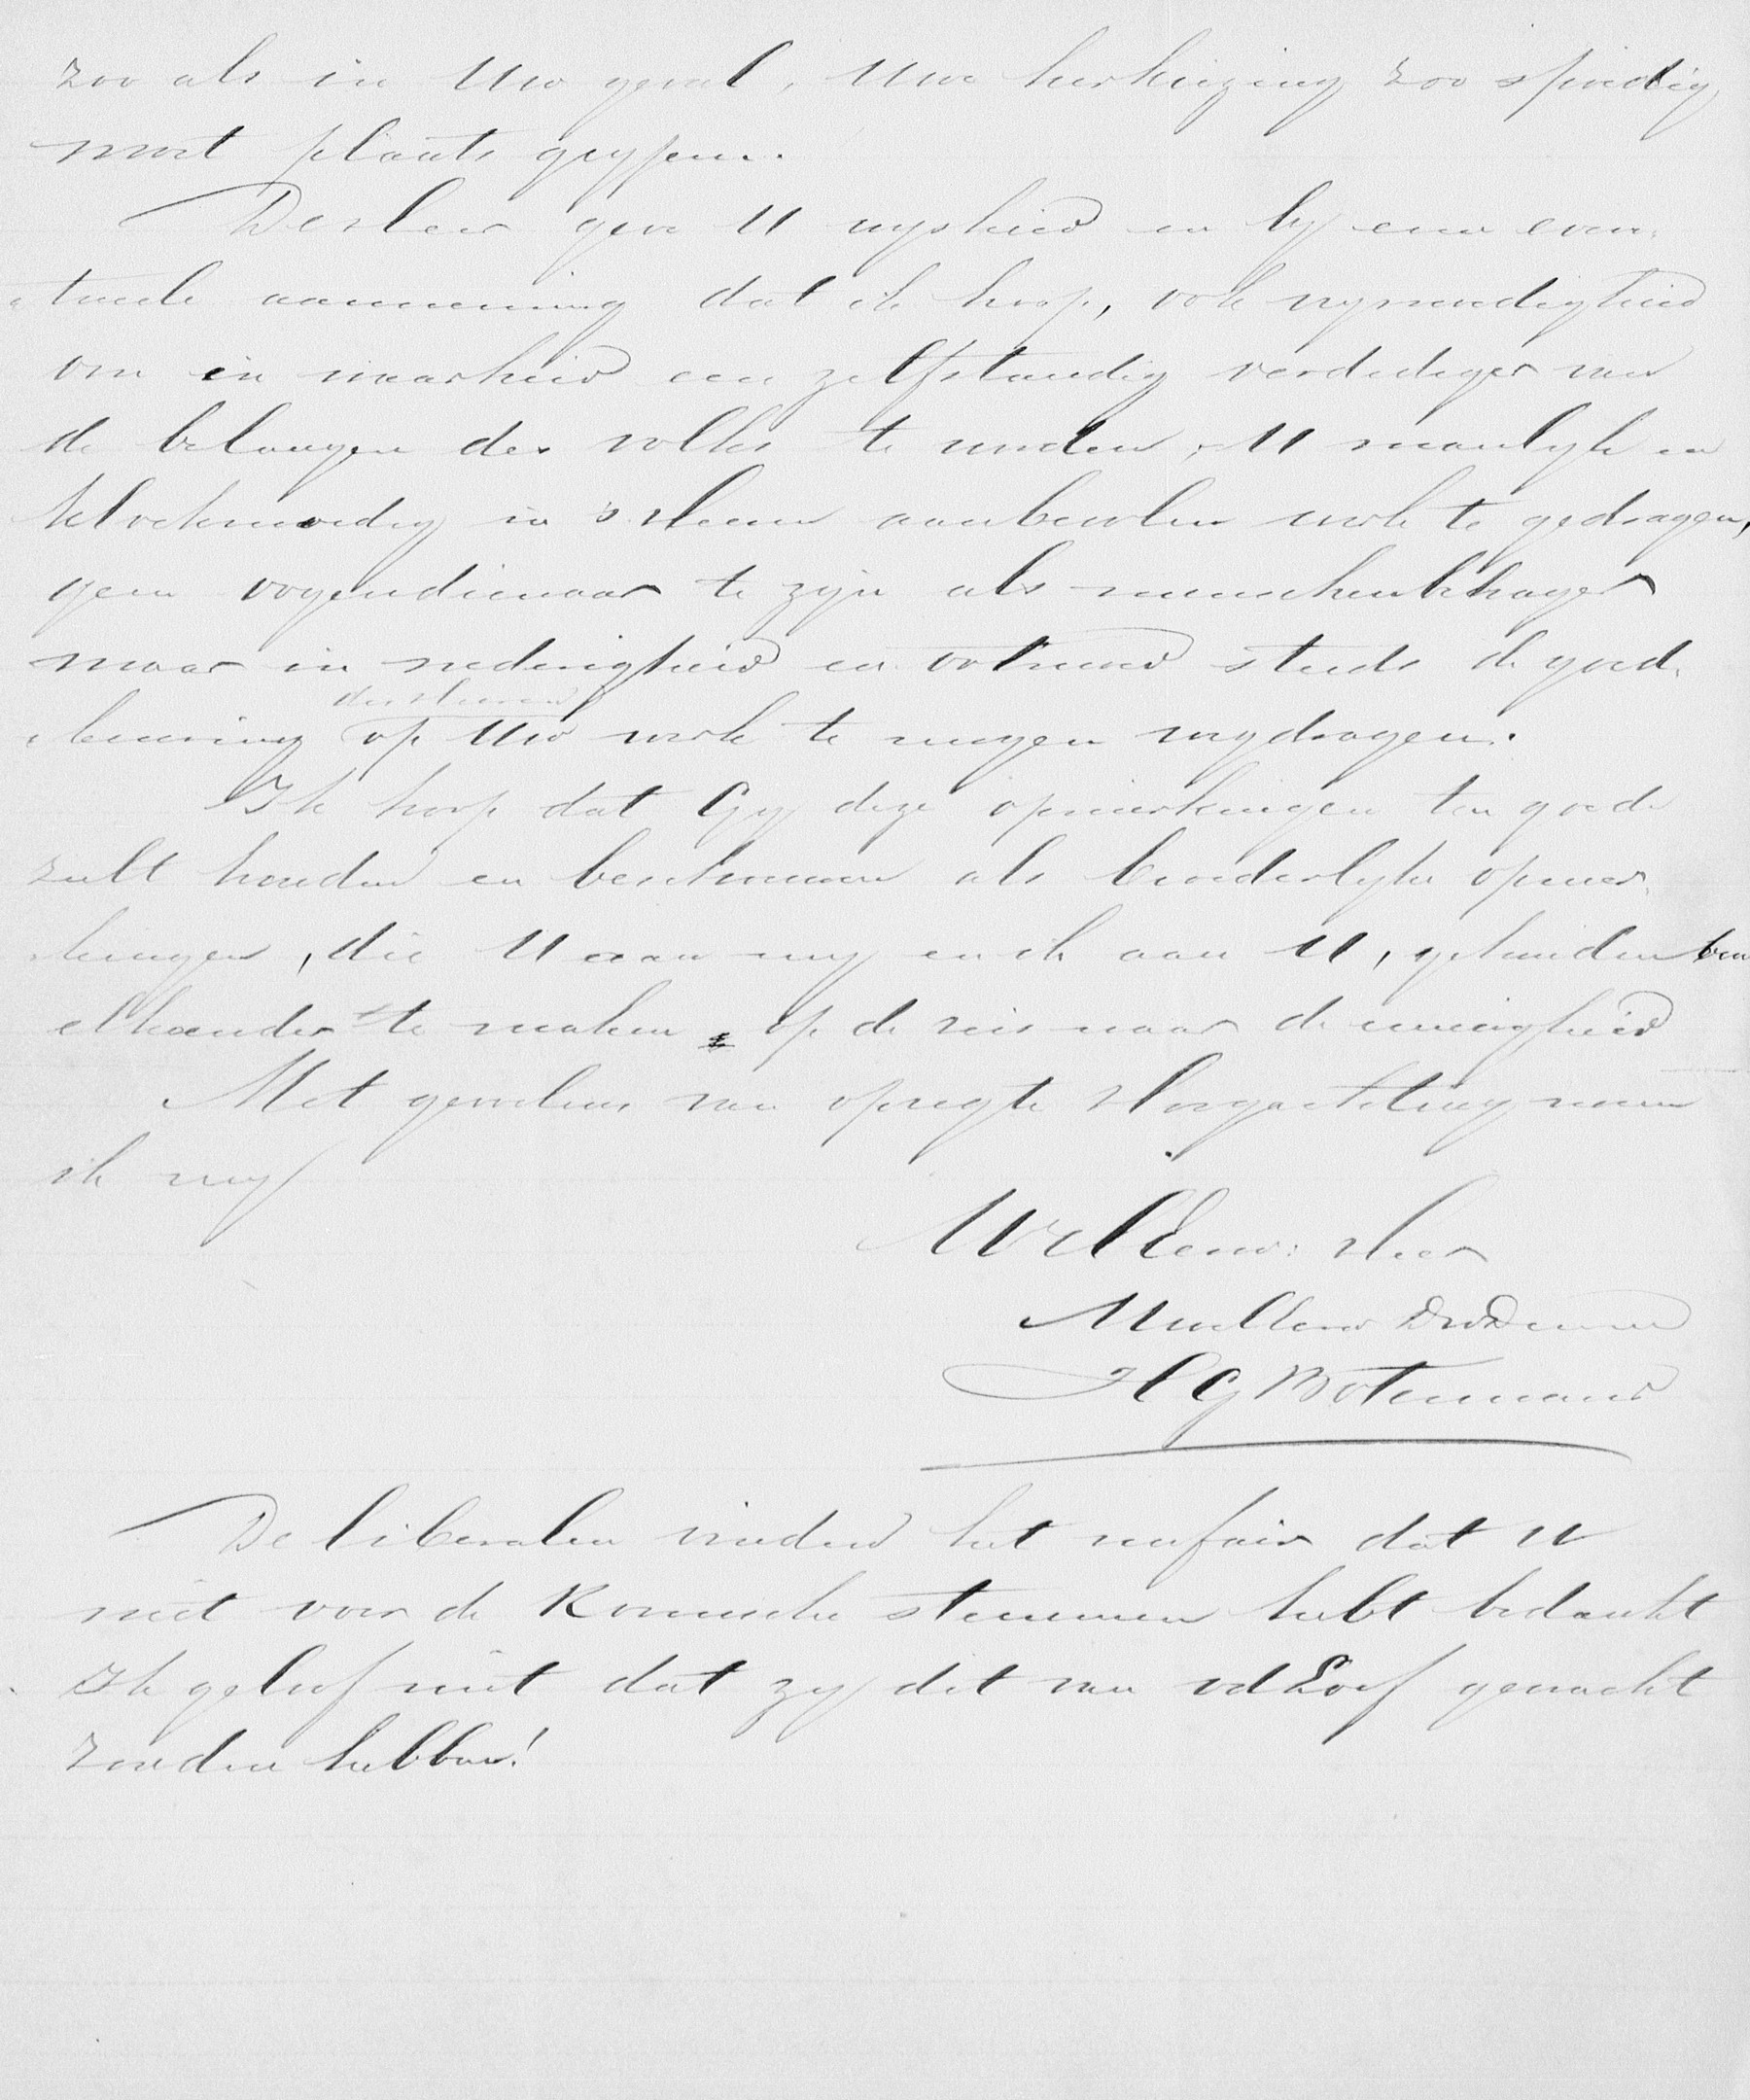 zoo als in Uw geval, Uwe herkiezing zoo spoedig
moet plaats grypen.
Des Heer geve U wysheid en by eene even-
tueele aanneming dat ik hoop, ook vrymoedigheid
om in waarheid een zelfstandig verdediger van
de belangen des volks te worden, U manlyk en
kloekmoedig in 's Heeren aanbevolen werk te gedragen,
geen oogendienaar te zijn als menschenbehager
maar in nederigheid en ootmoed steeds de goed-
des Heeren
keuring op Uw werk te mogen wegdragen.
Ik hoop dat Gy deze opmerkingen ten goede
zult houden en beschouwen als broederlyke opmer-
kingen, die U aan my en ik aan U, gehouden ben
elkander te maken op de reis naar de eeuwigheid
Met gevoelens van opregte Hoogachting noem
ik my
WelEerw: Heer
UwelEerw Dw Dienaar
HG Boterman
De liberalen vinden het unfair dat U
niet voor de Roomsche stemmen hebt bedankt
Ik geloof niet dat zy dit van vd Loef gewacht
zouden hebben!